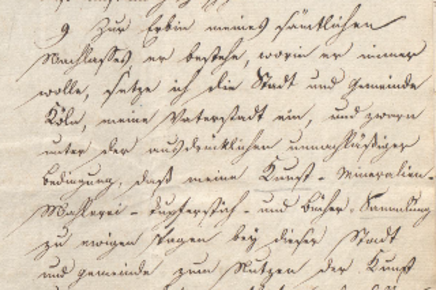 9 Zur Erbin meines sämtlichen
Nachlasses, er bestehe, worin er immer
wolle, setze ich die Stadt und Gemeinde
Köln, meine Vaterstadt ein, und zwarn
unter der ausdrücklichen unnachläßigen
Bedingung, daß meine Kunst- Mineralien-
Mahlerei- Kupferstich- und Bücher-Sammlung
zu ewigen Tagen bey dieser Stadt
und Gemeinde zum Nutzen der Kunst